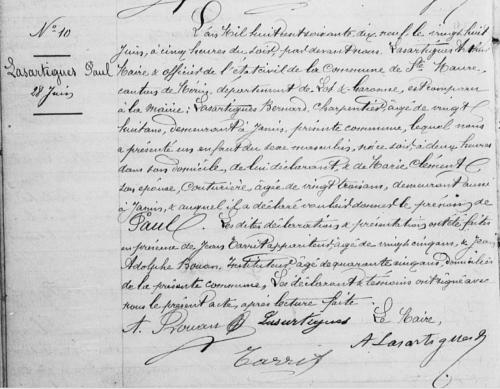 N° 10
Lasartigues Paul
28 Juin
L'an Mil huit cent soixante dix neuf le vingt huit
Juin, à cinq heures du soir, par devant nous Lasartigues
Maire & officier de l'état civil de la Commune de Ste Maure,
canton de département de Lot & Garonne, est comparu
à la mairie: Lasartigues Bernard, Charpentier, âgé de vingt
huit ans, demeurant à présente commune, lequel nous
a présenté un enfant du sexe masculin, né ce soir à deux heures
dans son domicile, de lui déclarant, & de Marie Clément
son épouse, Couturière, âgée de vingt trois ans, demeurant aussi
à & auquel il a déclaré vouloir donner le prénom de
Paul. Les dites déclarations & présentations ont été faites
en présence de Jean Tarrit appariteur, âgé de vingt cinq ans, & Jean
Adolphe Instituteur, âgé de quarante cinq ans, domiciliés
de la présente commune, Les déclarant & témoins ont signé avec
nous le présent acte, après lecture faite.
A. Lasartigues Le Maire,
Tarrit A Lasartigues